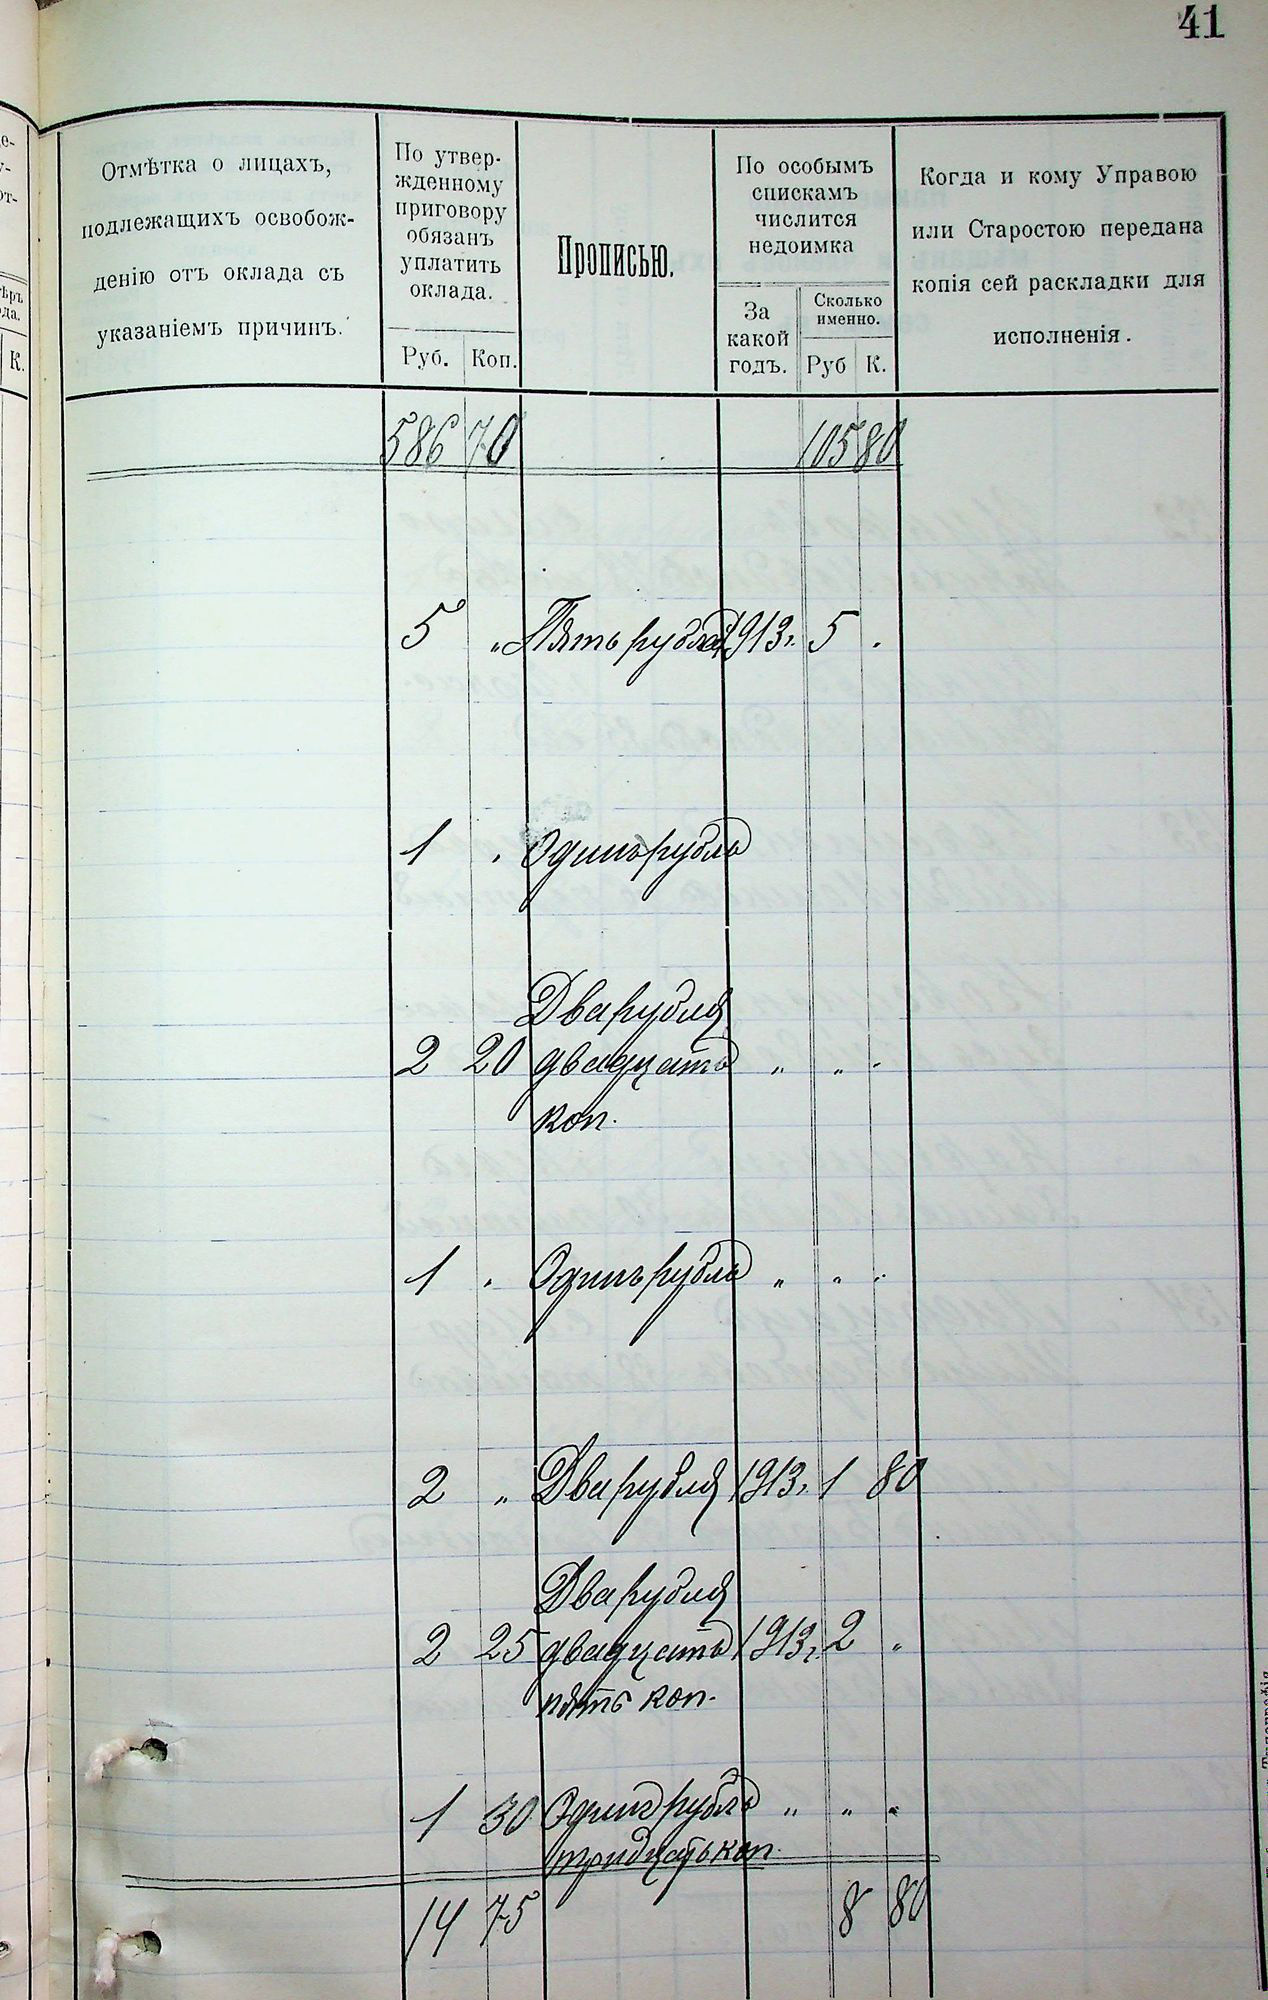 41
Отмѣтка о лицахъ,
подлежащихъ освобож-
денію отъ оклада съ
указаніемъ причинъ.
По утвер-
жденному
приговору
обязанъ
уплатить
оклада.
Руб. Коп.
Прописью.
По особымъ
спискамъ
числится
недоимка
За
какой
годъ.
Сколько
именно.
Руб К.
Когда и кому Управою
или Старостою передана
копія сей раскладки для
исполненія.
К.
586 70 105 80
5 „ Пять рублей 1913 г. 5 .
1 . Одинъ рубль
Два рубля
2 20 двадцать „ „ .
коп.
1 . Одинъ рубль „ „ .
2 „ Два рубля 1913 г. 1 80
Два рубля
2 25 двадцать 1913 г. 2 „
пять коп.
1 30 Одинъ рубль „ „ „
тридцать коп.
14 75 8 80